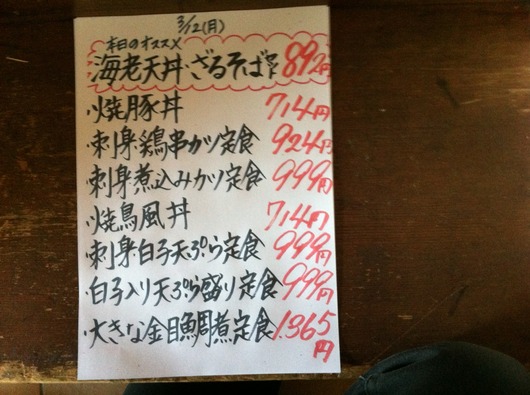 3/12(月)
本日のオススメ
海老天丼・ざるそばセット 892円
・焼豚丼 714円
・刺身・鶏串カツ定食 924円
・刺身・煮込みカツ定食 999円
・焼鳥風丼 714円
・刺身・白子天ぷら定食 999円
・白子入り天ぷら盛り定食 999円
・大きな金目鯛煮定食 1.365円